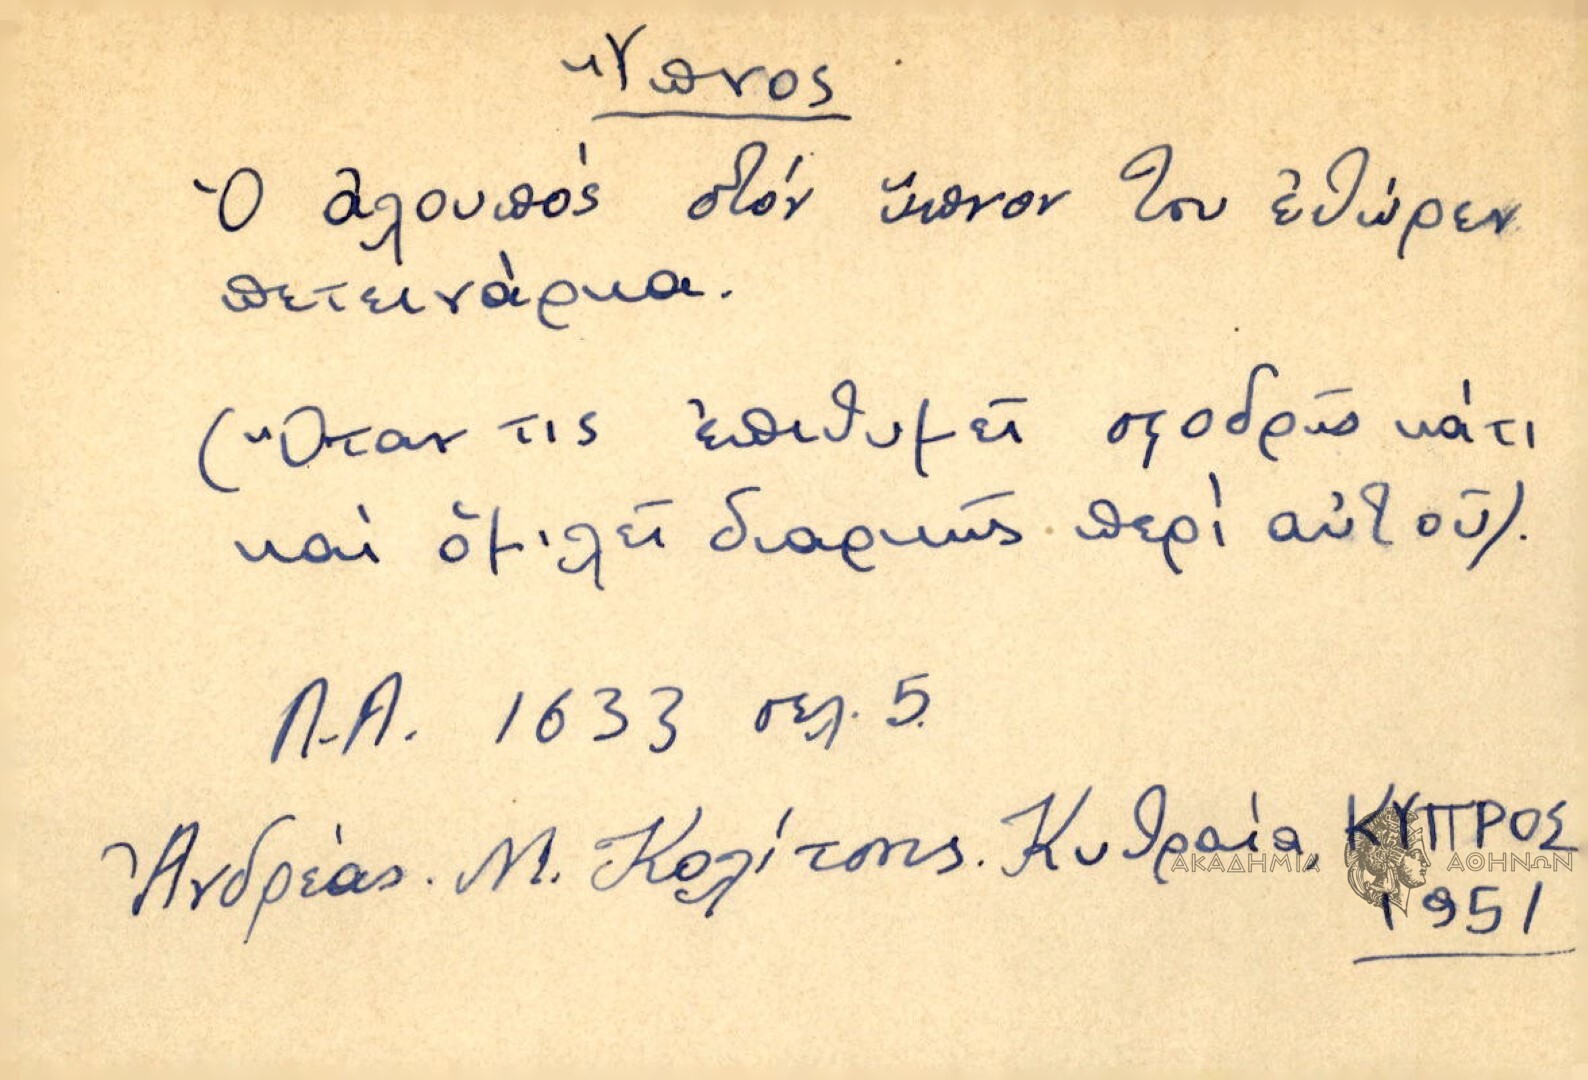 Ὕπνος
Ὁ ἀλουπός στόν ὕπνον του ἐθώρεν
πετεινάρκα.
(Ὅταν τις ἐπιθυμεῖ σφοδρῶς κάτι
καί ὁμιλεῖ διαρκῶς περί αὐτοῦ).
Λ.Α. 1633 σελ. 5
Ἀνδρέας. Μ. Κολίτσης. Κυθραία, ΚΥΠΡΟΣ
ΑΚΑΔΗΜΙΑ ΑΘΗΝΩΝ
1951